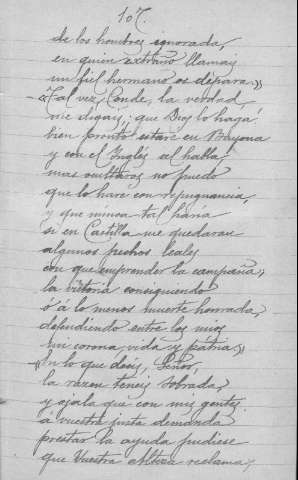 107.
de los hombres ignorada,
en quien extraño llamais
un fiel hermano os depara."
"Tal vez, Conde, la verdad,
me digais; que Dios lo haga!
bien pronto estaré en Bayona
y con el Inglés al habla
mas ocultaros no puedo
que lo haré con repugnancia,
y que nunca tal haria
si en Castilla me quedaran
algunos pechos leales
con que emprender la campaña,
la victoria consiguiendo
ó á lo menos muerte honrada,
defendiendo entre los mios
mi corona, vida y patria."
"En lo que decis, Señor,
la razon teneis sobrada,
y ojala que con mis gentes
á vuestra justa demanda
prestar la ayuda pudiese
que Vuestra Alteza reclama,